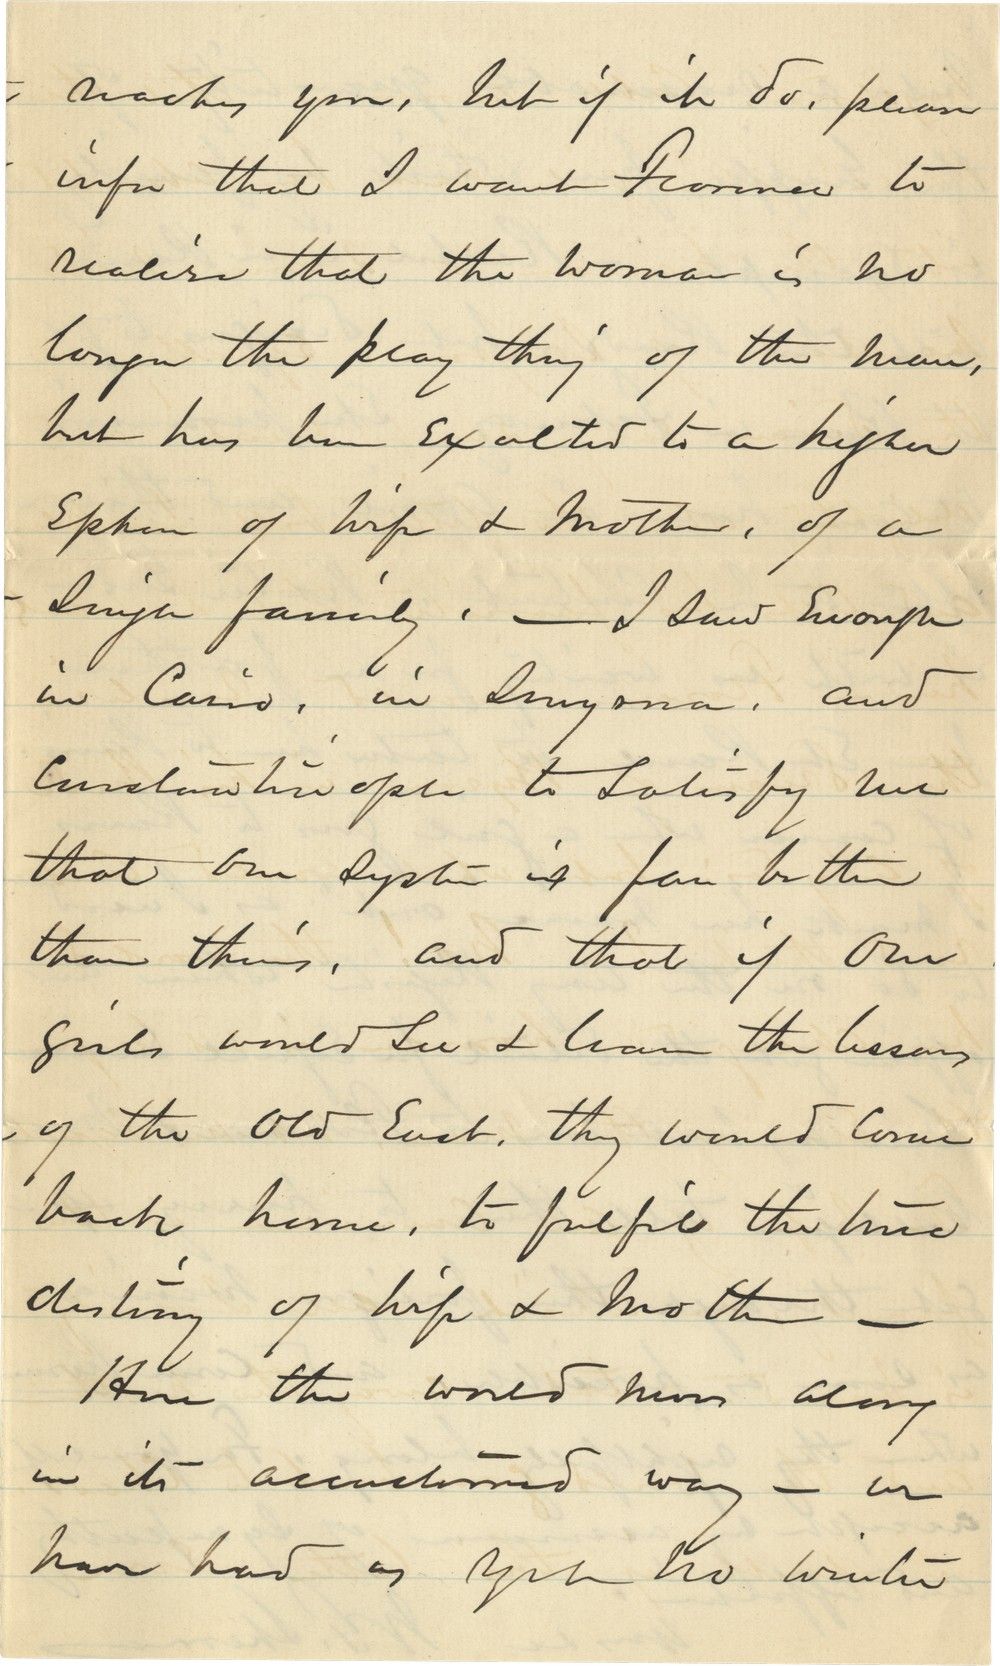 reaches you, but if it do, please
infer that I want Florence to
realise that the woman is no
longer the play thing of the man,
but has been Exalted to a higher
Sphere of wife & Mother, of a
Single family. — I saw Enough
in Cairo, in Smyrna, and
Constantinople to Satisfy me
that our System is far better
than theirs, and that if our
girls would See & learn the lessons
of the Old East, they would Come
back home, to fulfil the true
destiny of wife & Mother —
Here the world moves along
in its accustomed way — we
have had as yet no winter